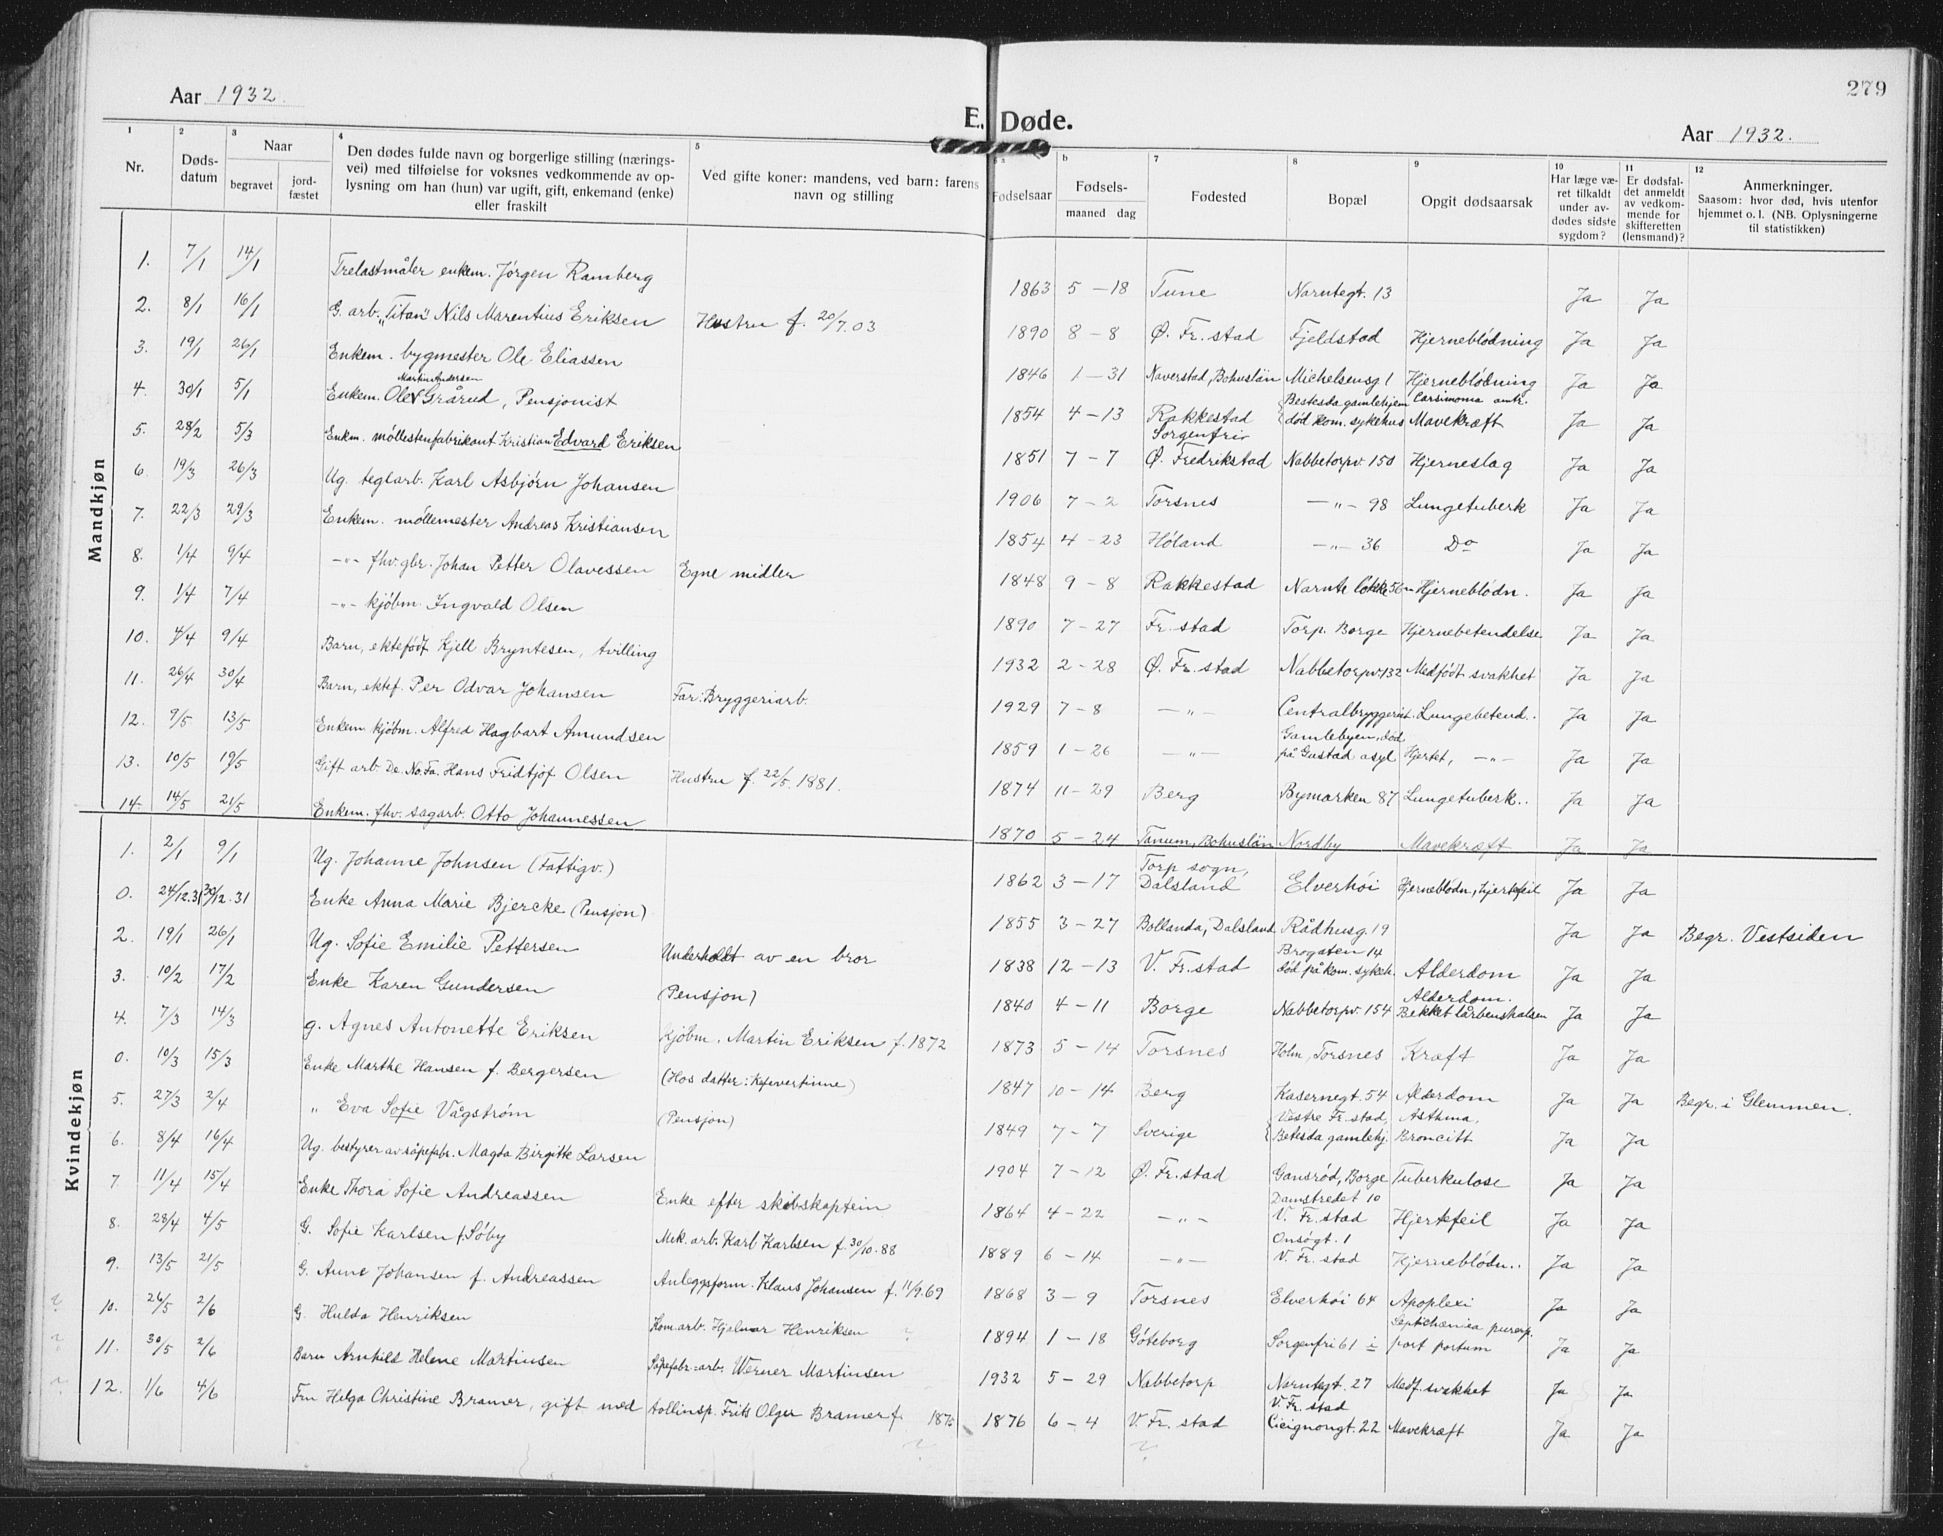 279
Aar 1932.
E. Døde.
Aar 1932.
1 2 3 4 5 6 a b 7 8 9 10 11 12
Nr.
Døds-
datum
Naar
begravet
jord-
fæstet
Den dødes fulde navn og borgerlige stilling (nærings-
vei) med tilføielse for voksnes vedkommende av op-
lysning om han (hun) var ugift, gift, enkemand (enke)
eller fraskilt
Ved gifte koner: mandens, ved barn: farens
navn og stilling
Fødselsaar
Fødsels-
maaned dag
Fødested
Bopæl
Opgit dødsaarsak
Har læge væ-
ret tilkaldt
under av-
dødes sidste
sygdom?
Er dødsfal-
det anmeldt
av vedkom-
mende for
skifteretten
(lensmand)?
Anmerkninger.
Saasom: hvor død, hvis utenfor
hjemmet o. l. (NB. Oplysningerne
til statistikken)
Mandkjøn
1. 7/1 14/1 Trelastmåler enkem. Jörgen Ramberg 1863 5 - 18 Tune Narntegt. 13 Ja Ja
2. 8/1 16/1 G. arb. "Titan" Nils Marentius Eriksen Hustru f. 20/7.03 1890 8 - 8 Ø. Fr. stad Fjeldstad Hjerneblödning Ja Ja
3. 19/1 26/1 Enkem. bygmester Ole Eliassen 1846 1 - 31 Naverstad, Bohuslän Michelsensg 1 Hjerneblödning Ja Ja
Martin Andersen
Bestesda gamlehjem Carsinoma
4. 30/1 5/1 Enkem. Ole Grårud, Pensjonist 1854 4 - 13 Rakkestad död kom. sykehus Mavekræft Ja Ja
Sorgenfri
5. 28/2 5/3 Enkm. möllestenfabrikant Kristian Edvard Eriksen 1851 7 - 7 Ø. Fredrikstad Nabbetorpv. 150 Hjerneslag Ja Ja
6. 19/3 26/3 Ug. teglarb. Karl Asbjörn Johansen 1906 7 - 2 Torsnes - " - 98 Lungetuberk Ja Ja
7. 22/3 29/3 Enkem. möllemester Andreas Kristiansen 1854 4 - 23 Höland - " - 36 Do Ja Ja
8. 1/4 9/4 - " - fhv. gbr. Johan Petter Olavessen Egne midler 1848 9 - 8 Rakkestad Narnte lökke 56 Hjerneblödn. Ja Ja
9. 1/4 7/4 - " - kjöbm. Ingvald Olsen 1890 7 - 27 Fr. stad Torp. Borge Hjernebetendelse Ja Ja
10. 4/4 9/4 Barn, ektefödt Kjell Bryntesen, tvilling 1932 2 - 28 Ø. Fr. stad Nabbetorpv. 132 Medfödt svakhet Ja Ja
11. 26/4 30/4 Barn, ektef. Per Odvar Johansen Far: Bryggeriarb. 1929 7 - 8 - " - Centralbryggeriet. Lungebetend. Ja Ja
Gamlebyen, död
12. 9/5 13/5 Enkem. kjöbm. Alfred Hagbart Amundsen 1859 1 - 26 - " - på Gustad asyl Hjertet, - " - Ja Ja
13. 10/5 19/5 Gift arb. De. No. Fa. Hans Fridtjof Olsen Hustru f. 22/5. 1881. 1874 11 - 29 Berg Bymarken 87 Lungetuberk. Ja Ja
14. 14/5 21/5 Enkem. fhv. sagarb. Otto Johannessen 1870 5 - 24 Tanum, Bohuslän Nordby Mavekræft Ja Ja
Kvindekjøn
Torp sogn,
1. 2/1 9/1 Ug. Johanne Johnsen (Fattigv.) 1862 3 - 17 Dalsland Elverhöi Hjerneblödn, hjertefeil Ja Ja
0. 24/12.31 30/12.31 Enke Anna Marie Bjercke (Pensjon) 1855 3 - 27 Bollanda, Dalsland Rådhusg. 19 Ja Ja Begr. Vestsiden
Brogaten 14
2. 19/1 26/1 Ug. Sofie Emilie Pettersen Underholdt av en bror 1838 12 - 13 V. Fr. stad död på kom. sykeh. Alderdom Ja Ja
Alderdom.
3. 10/2 17/2 Enke Karen Gundersen (Pensjon) 1840 4 - 11 Borge Nabbetorpv. 154 Bekket lårbenshalsen Ja Ja
4. 7/3 14/3 g. Agnes Antonette Eriksen kjöbm. Martin Eriksen f. 1872 1873 5 - 14 Torsnes Holm, Torsnes Kræft Ja Ja
0. 10/3 15/3 Enke Marthe Hansen f. Bergersen (Hos datter: 1847 10 - 14 Berg Kasernegt. 54 Alderdom Ja Ja Begr. i Glemmen.
Vestre Fr. stad, Asthma,
5. 27/3 2/4 " Eva Sofie Vågström (Pensjon) 1849 7 - 7 Sverige Betesda gamlehj. Broncitt Ja Ja
6. 8/4 16/4 Ug. bestyrer av såpefabr. Magda Birgitte Larsen 1904 7 - 12 Ø. Fr. stad Gansröd, Borge Tuberkulose Ja Ja
Damstredet 10
7 11/4 15/4 Enke Thora Sofie Andreassen Enke efter skibskaptein 1864 4 - 22 - " - V. Fr. stad Hjertefeil Ja Ja
Onsögt. 1
8. 28/4 4/5 G. Sofie Karlsen f. Söby Mek. arb. Karl Karlsen f. 30/10.88 1889 6 - 14 - " - V. Fr. stad Hjerneblödn. Ja Ja
9. 13/5 21/5 G. Anne Johansen f. Andreassen Anleggsform. Klaus Johansen f. 11/9.69 1868 3 - 9 Torsnes Elverhöi 64 Apoplexi Ja Ja
10. 26/5 2/6 G. Hulda Henriksen Kom. arb. Hjalmar Henriksen ? 1894 1 - 18 Göteborg Sorgenfri 61 post portum Ja Ja
11. 30/5 2/6 Barn Arnhild Helene Martinsen Såpefabr.-arb. Werner Martinsen 1932 5 - 29 Nabbetorp Narntegt. 27 Medf. svakhet Ja Ja
V. Fr. stad
12. 1/6 4/6 Fru Helga Christine Bramer, gift med tollinsp. Frits Olger Bramer f. 1875 1876 6 - 4 V. Fr. stad Cicignongt. 22 Mavekræft Ja Ja